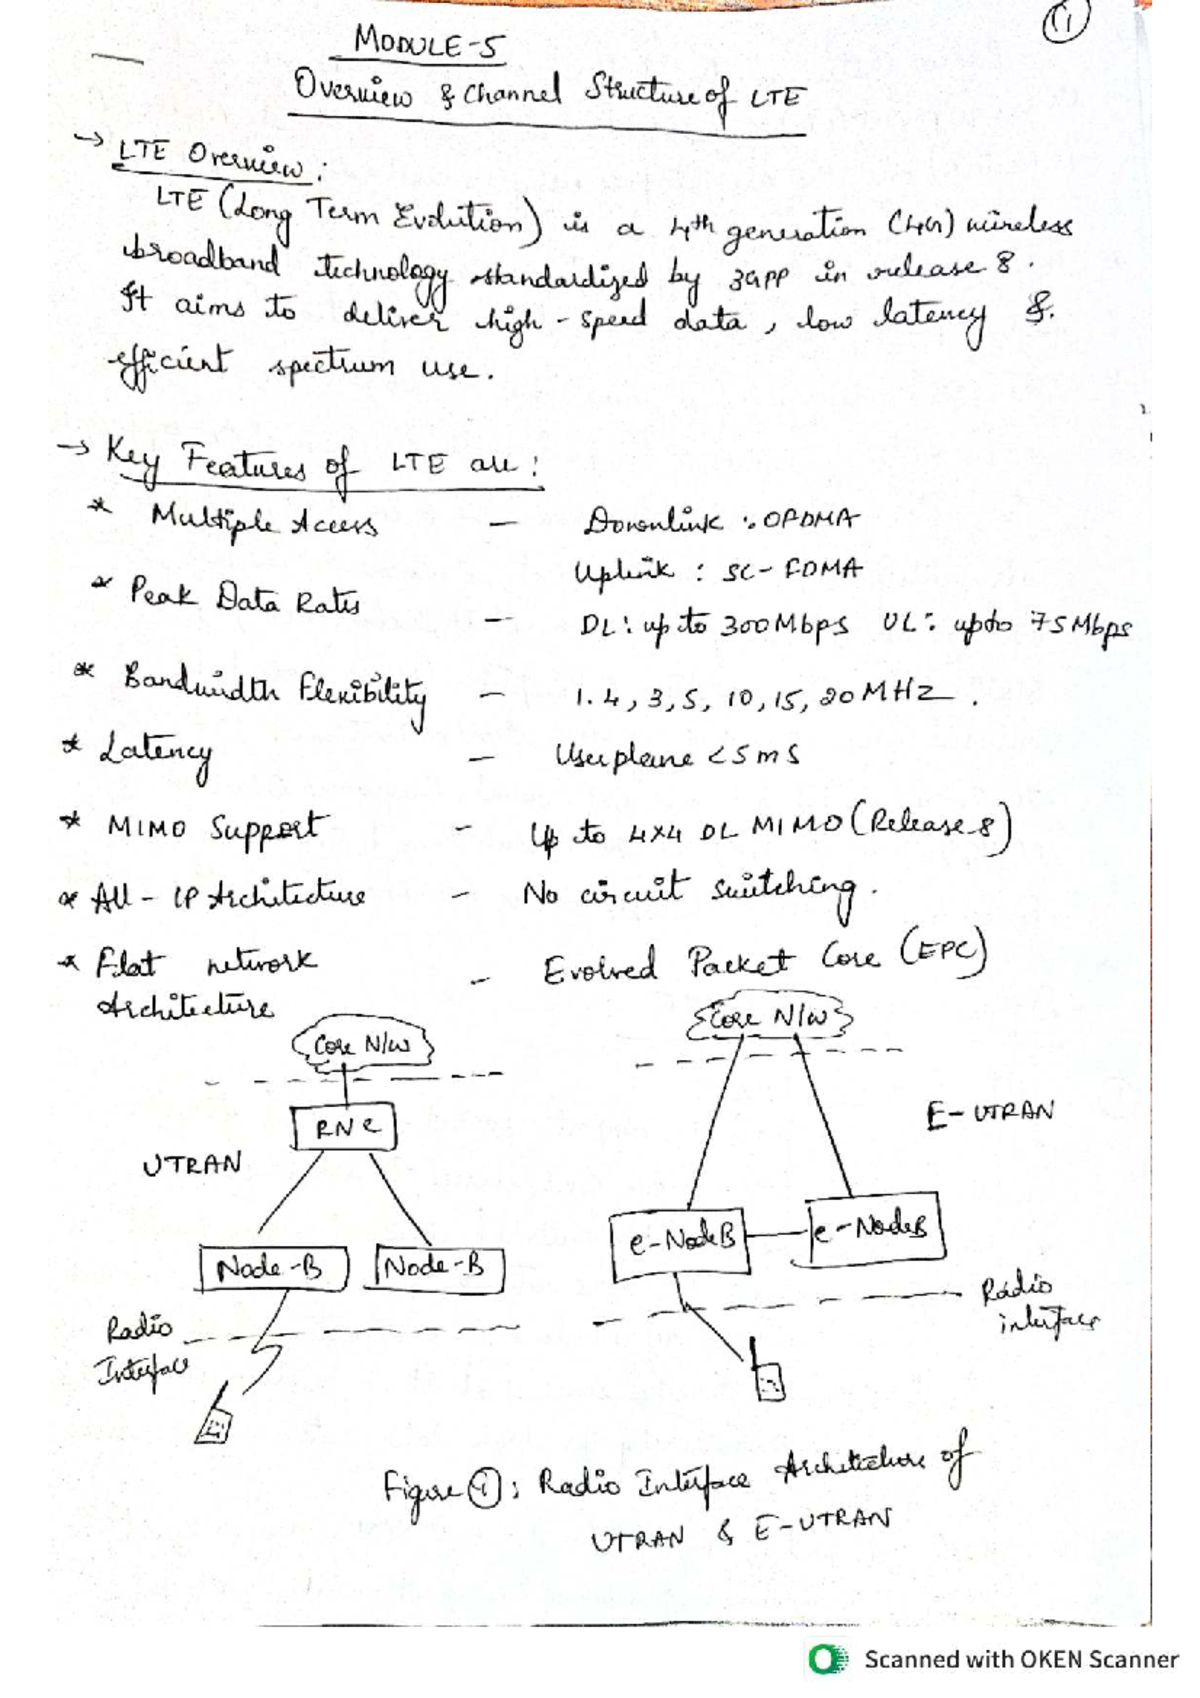 1
MODULE-5
Overview & Channel Structure of LTE
→ LTE Overview :
LTE (Long Term Evolution) is a 4th generation (4G) wireless
broadband technology standardized by 3GPP in release 8.
It aims to deliver high-speed data, low latency &
efficient spectrum use.
→ Key Features of LTE are :
* Multiple Access — Downlink : OFDMA
Uplink : SC-FDMA
* Peak Data Rates — DL : up to 300Mbps UL : upto 75Mbps
* Bandwidth Flexibility — 1.4, 3, 5, 10, 15, 20 MHZ.
* Latency — User plane <5ms
* MIMO Support — Up to 4x4 DL MIMO (Release-8)
* All-IP Architecture — No circuit switching.
* Flat network — Evolved Packet Core (EPC)
Architecture
Core N/W
Core N/W
RNC
UTRAN
E-UTRAN
Node-B
Node-B
e-NodeB
e-NodeB
Radio
Interface
Radio
interface
Figure 1 : Radio Interface Architecture of
UTRAN & E-UTRAN
Scanned with OKEN Scanner